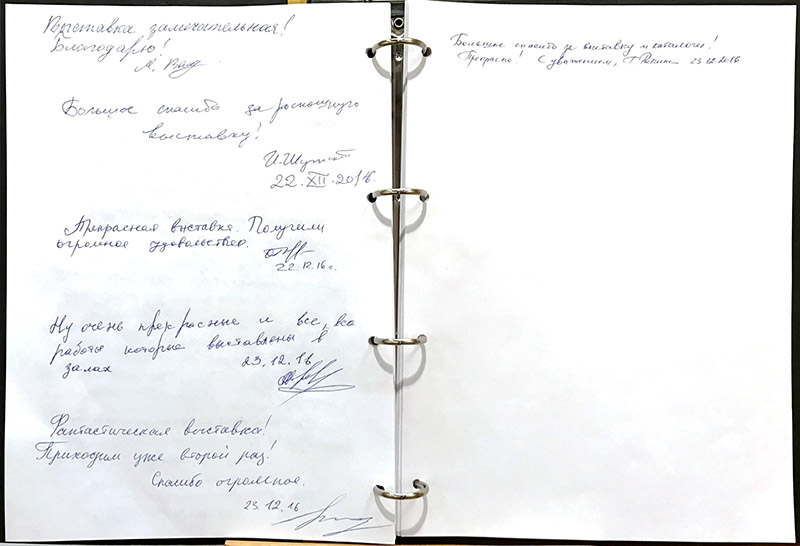 Выставка замечательная!
Благодарю!
Большое спасибо за роскошную
выставку!
22.XII.2016.
Прекрасная выставка. Получили
огромное удовольствие.
22.12.16 г.
Ну очень прекрасные и все, все
работы которые выставлены в
залах 23.12.16
Фантастическая выставка!
Приходим уже второй раз!
Спасибо огромное.
23.12.16
Большое спасибо за выставку и каталоги!
Прекрасно! С уважением, 23.12.2016